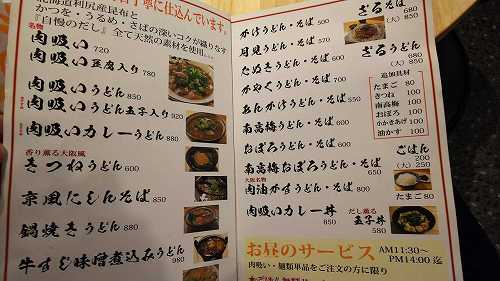 北海道利尻産昆布と
かつを・うるめ・さばの深いコクが織りなす
『自慢のだし』全て天然の素材を使用…
名物
肉吸い 720
肉吸い豆腐入り 780
肉吸いうどん 850
肉吸いうどん玉子入り 940
肉吸いカレーうどん 880
香り薫る大阪風
きつねうどん 600
京風にしんそば 850
鍋焼きうどん 880
牛すじ味噌煮込みうどん 980
かけうどん・そば 500
月見うどん・そば 570
たぬきうどん・そば 600
かやくうどん・そば 700
あんかけうどん・そば 550
南高梅うどん・そば 600
おぼろうどん・そば 600
南高梅おぼろうどん・そば 650
大阪名物
肉油かすうどん・そば 850
肉吸いカレー丼 850
ざるそば 680
(大) 850
ざるうどん 680
(大) 850
追加具材
たまご 80
きつね 100
南高梅 100
おぼろ 100
小かきあげ 100
油かす 100
ごはん 200
(大) 250
たまご 80
だし薫る
玉子丼 580
お昼のサービス AM11:30〜
PM14:00 迄
肉吸い・麺類単品をご注文の方に限り